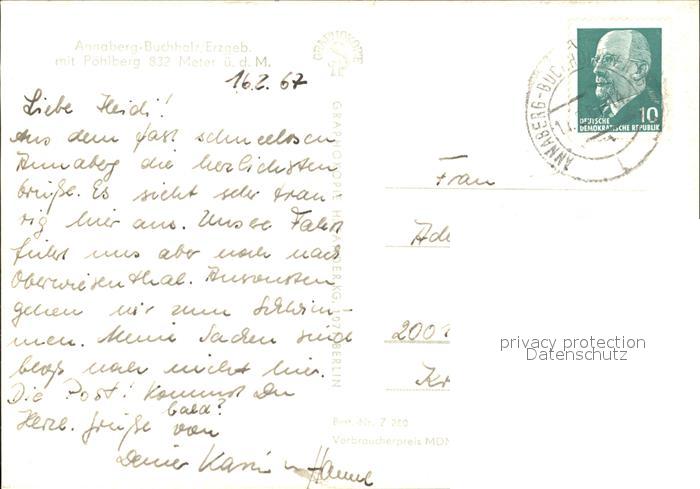 Annaberg-Buchholz, Erzgeb.
mit Pöhlberg 832 Meter ü. d. M.
16.2.67
Liebe Heidi!
Aus dem fast schneelosen
Annaberg die herzlichsten
Grüße. Es sieht sehr trau
rig hier aus. Unsere Fahrt
führt uns aber noch nach
Oberwiesenthal. Ansonsten
gehen wir zum Schwim-
men. Meine Sachen sind
bloß noch nicht hier.
Die Post! Kommst Du
bald?
Herzl. Grüße von
Deiner
GRAPHOKOPIE
GRAPHOKOPIE H. SANDER KG. 107 BERLIN
Best.-Nr. Z 280
Verbraucherpreis MDN
ANNABERG-BUCHHOLZ
DEUTSCHE
DEMOKRATISCHE REPUBLIK
10
Frau
Ad
200
Kr
privacy protection
Datenschutz